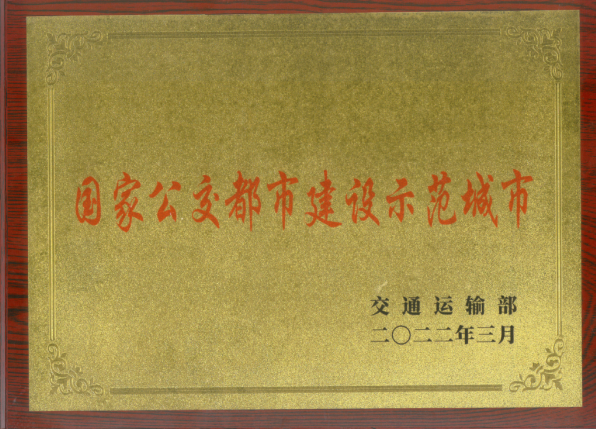 国家公交都市建设示范城市
交通运输部
二〇二二年三月